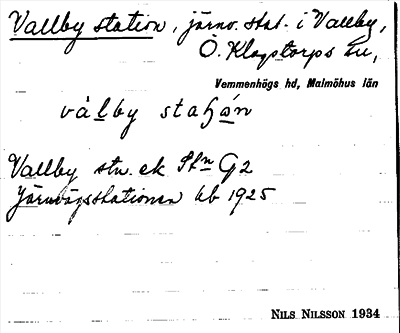 Vallby station, järnv. stat. i Vallby,
Ö. Klagstorps sn,
Vemmenhögs hd, Malmöhus län
vàlby staɧán
Vallby stn. ek Stn G2
Järnvägsstationen kb 1925
NILS NILSSON 1934